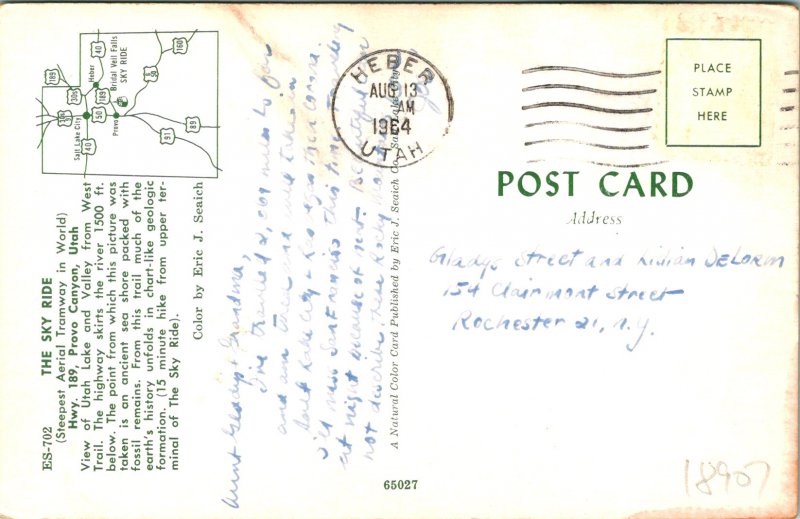 ES-702 THE SKY RIDE
(Steepest Aerial Tramway in World)
Hwy. 189, Provo Canyon, Utah
View of Utah Lake and Valley from West
Trail. The highway skirts the river 1500 ft.
below. The point from which this picture was
taken is an ancient sea shore packed with
fossil remains. From this trail much of the
earth's history unfolds in chart-like geologic
formation. (15 minute hike from upper ter-
minal of The Sky Ride).
Color by Eric J. Seaich
189
40
Bridal Veil Falls
SKY RIDE
160
Heber
50
30S
189
50
Provo
Salt Lake City
40
91
89
Aunt Gladys & Grandma,
I've traveled 2,001 miles so far
and am
Salt Lake City &
San Francisco this time. Traveling
at night because of heat. Beautiful
not describe these Rocky
A Natural Color Card Published by Eric J. Seaich Co., Salt Lake City
65027
HEBER
AUG 13
AM
1964
UTAH
PLACE
STAMP
HERE
POST CARD
Address
Gladys Street and Lillian DeLorm
154 Clairmont Street
Rochester 21, N.Y.
18907